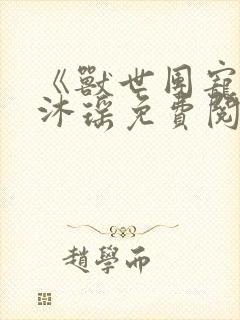 《獸世團寵
沐瑤免費閱
趙學而